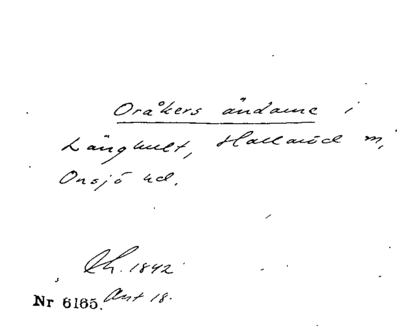 Oråkers ändame i
Långhult, Hallaröd m,
Onsjö hd.
Lh. 1842
Nr 6165. Ant 18.